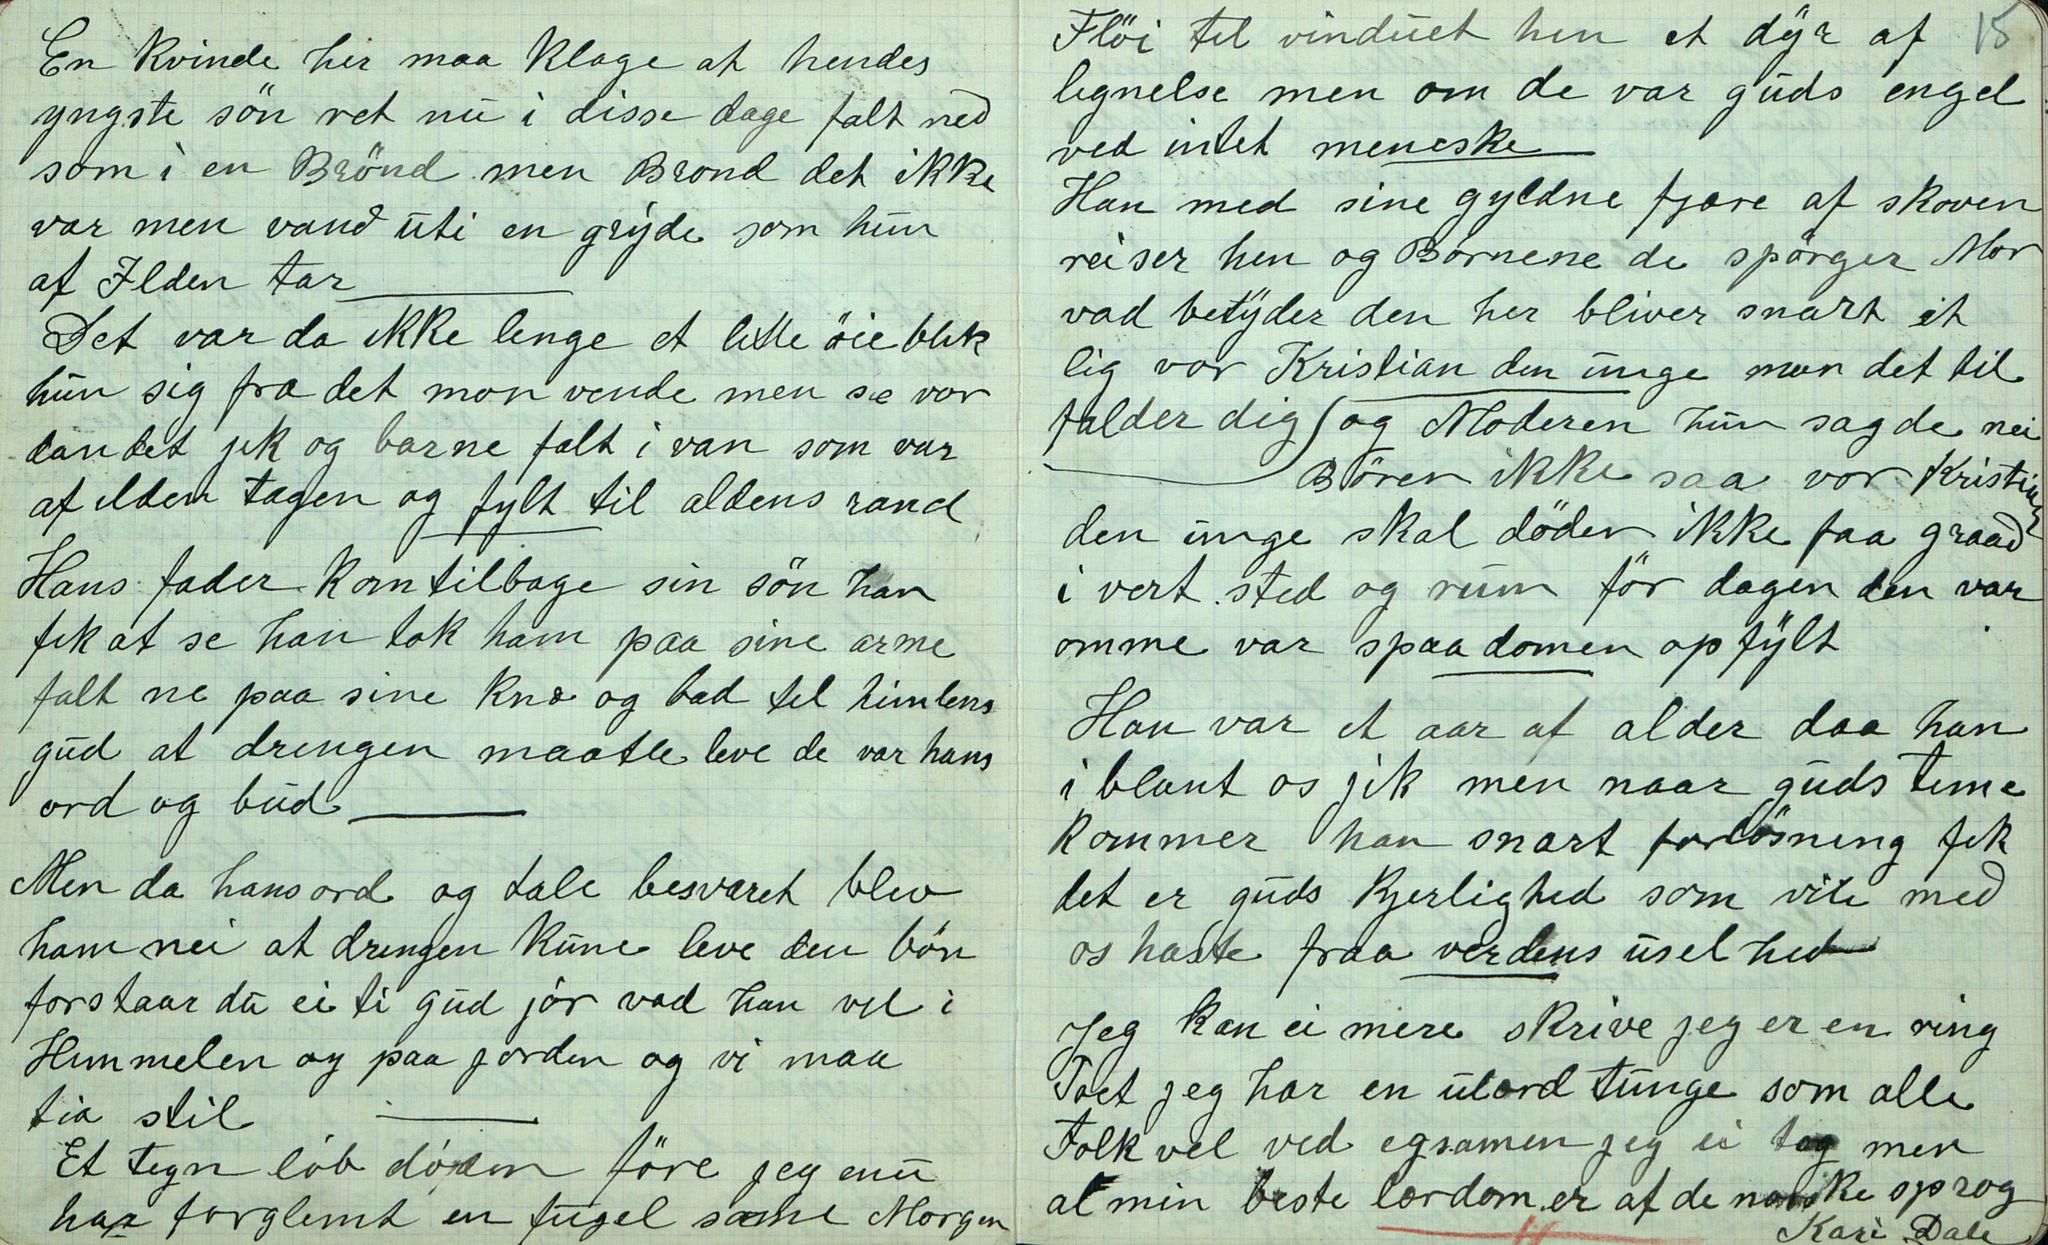 En Kvinde her maa Klage at hendes
yngste sön ret nu i disse dage falt ned
som i en Brönd men Brond det ikke
var men vand uti en gryde som hun
af Ilden tar
Det var da ikke lenge et litte öie blik
hun sig fra det mon vende men se vor
dandet jik og barne falt i van som var
af ilden tagen og fylt til aldens rand
Hans fader kom tilbage sin sön han
fik at se han tok ham paa sine arme
falt ne paa sine Knæ og bad til himlens
gud at drengen maatte leve de var hans
ord og bud
Men da hans ord og tale besvaret blev
ham nei at drengen Kune leve den bön
forstaar du ei ti gud jör vad han vil i
Himmelen og paa jorden og vi maa
tia stil
Et tegn löb döden före jeg enu
har forglemt en fugel same Morgen
15
Flöi til vinduet hen et dyr af
lignelse men om de var guds engel
ved intet meneske
Han med sine gyldne fjære af skoven
reiser hen og Börnene de spörger Mor
vad betyder den her bliver snart et
lig vor Kristian den unge mon det til
falder dig og Moderen hun sagde nei
Bören ikke saa vor Kristian
den unge skal döden ikke faa graad
i vert sted og rum för dagen den var
omme var spaadomen opfylt
Han var et aar af alder daa han
i blant os jik men naar guds time
kommer han snart forlösning fik
det er guds Kjerlighed som vile med
os haste fraa verdens uselhed
Jeg kan ei mere skrive jeg er en ring
Poet jeg har en ulærd tunge som alle
Folk vel ved egsamen jeg ei tog men
al min beste lærdom er af de norske sprog
Kari Dale